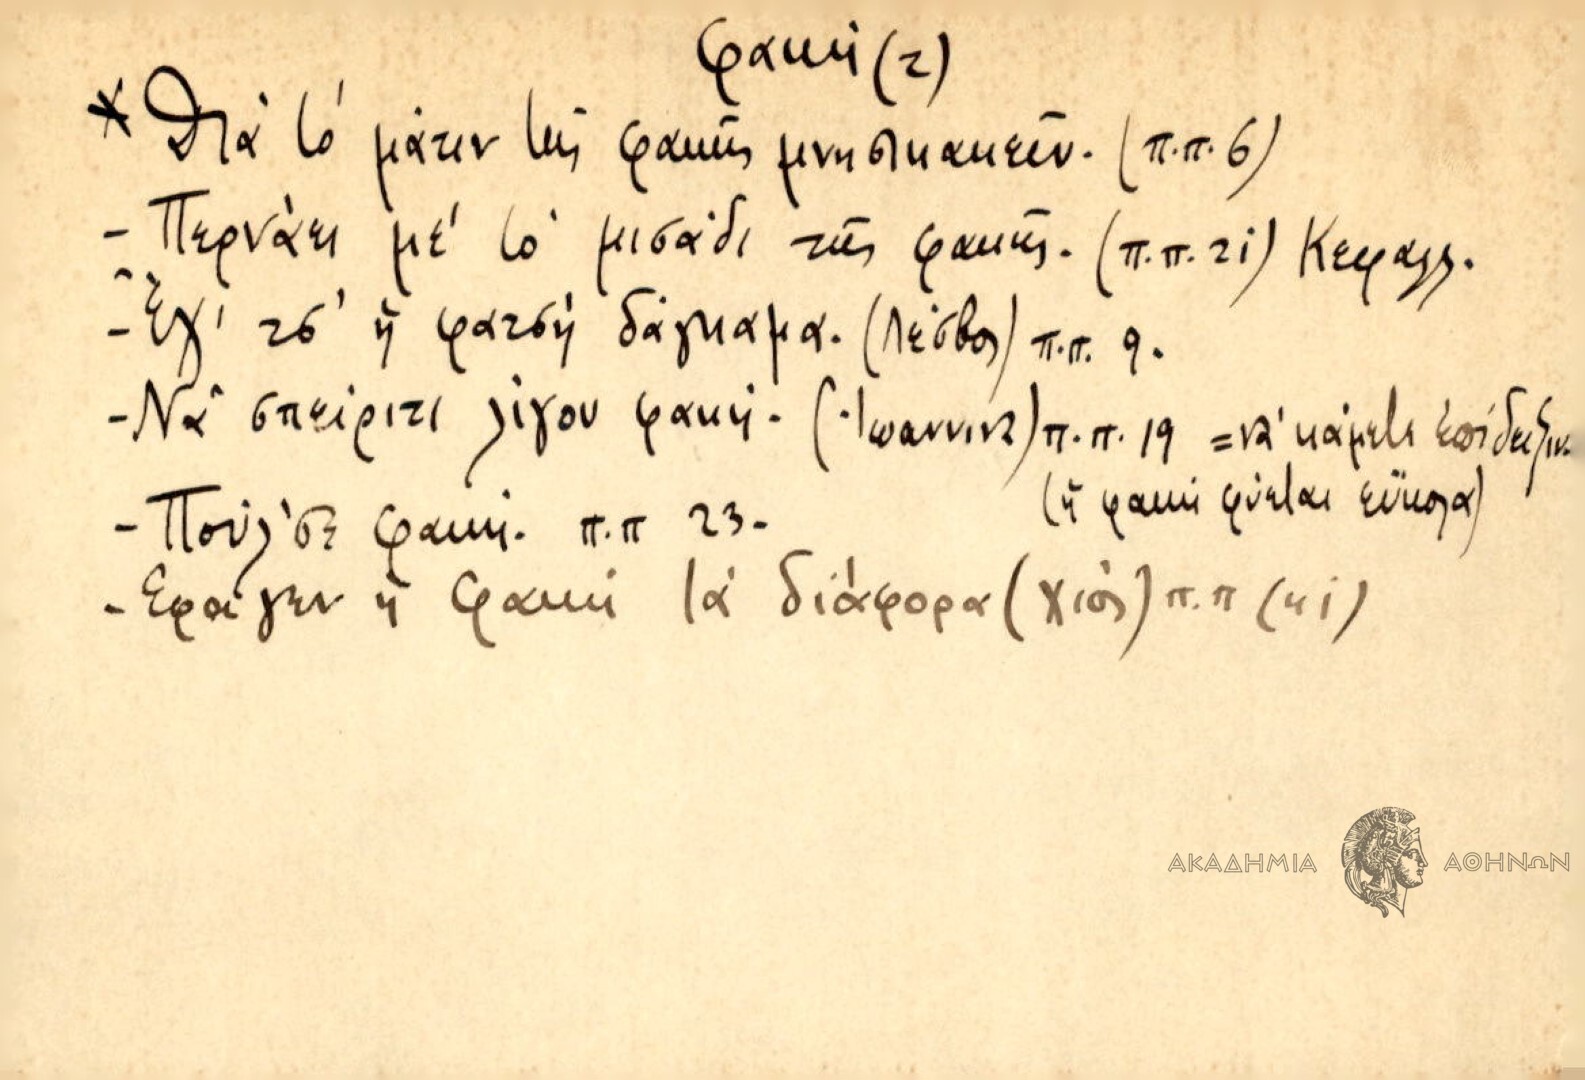 φακή (2)
* Διὰ τὸ μάτιν τῆς φακῆς μνησικακεῖν. (π.π. 6)
- Περνάει μὲ τὸ μισάδι τῆς φακῆς. (π.π. 21) Κεφαλλ.
- Ἔχ' τσ' ἡ φατσή δάγκαμα. (Λέσβος) π.π. 9.
- Νὰ σπείριτι λίγου φακή. (Ἰωαννινα) π.π. 19 = νὰ κάμετε ἐπίδειξιν.
(ἡ φακή φύεται εὔκολα)
- Πούλ'σε φακή. π.π 23.
- Εφαγεν ἡ φακή τὰ διάφορα (Χίος) π.π
ΑΚΑΔΗΜΙΑ ΑΘΗΝΩΝ